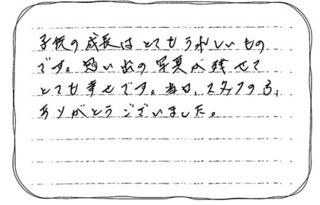 子供の成長はとてもうれしいもの
です。思い出の写真が残せて
とても幸せです。当日、スタッフの方、
ありがとうございました。